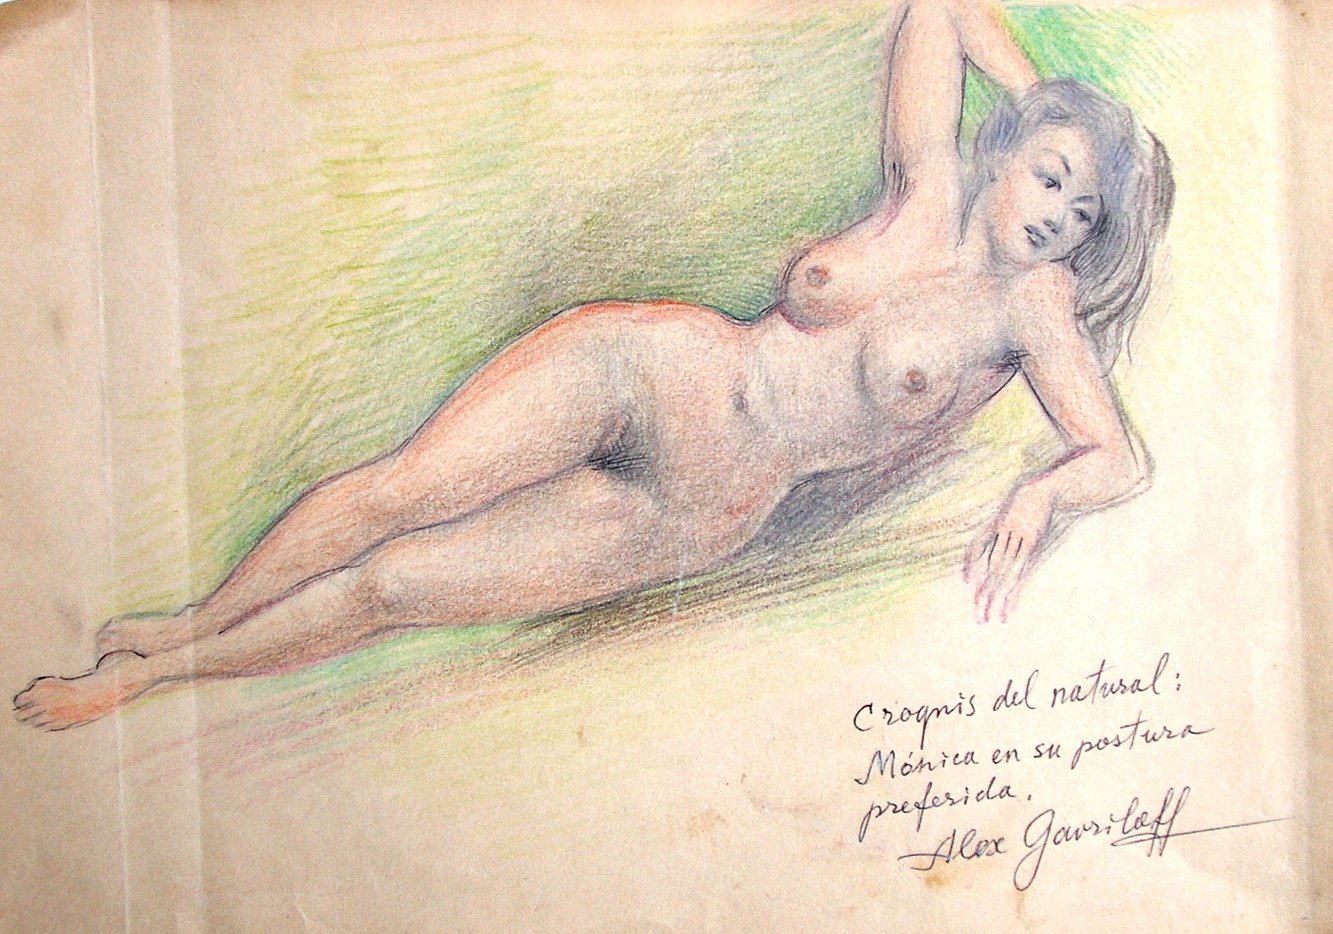 Croquis del natural:
Mónica en su postura
preferida.
Alex Gavriloff